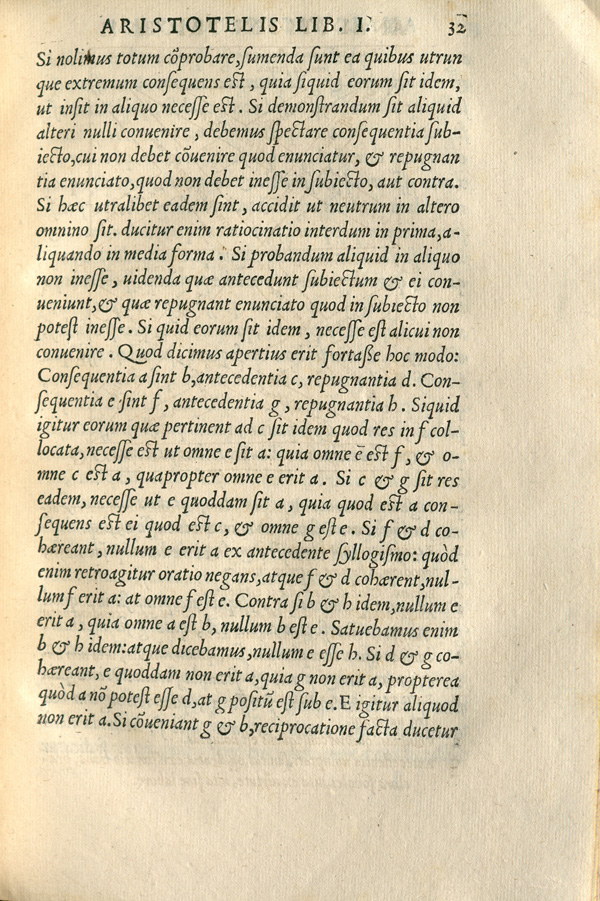 ARISTOTELIS LIB. I. 32
Si nolimus totum cõprobare, sumenda sunt ea quibus utrun
que extremum consequens est, quia siquid eorum sit idem,
ut insit in aliquo necesse est. Si demonstrandum sit aliquid
alteri nulli conuenire, debemus spectare consequentia sub-
iecto, cui non debet cõuenire quod enunciatur, & repugnan
tia enunciato, quod non debet inesse in subiecto, aut contra.
Si hæc utralibet eadem sint, accidit ut neutrum in altero
omnino sit. ducitur enim ratiocinatio interdum in prima, a-
liquando in media forma. Si probandum aliquid in aliquo
non inesse, uidenda quæ antecedunt subiectum & ei con-
ueniunt, & quæ repugnant enunciato quod in subiecto non
potest inesse. Si quid eorum sit idem, necesse est alicui non
conuenire. Quod dicimus apertius erit fortaße hoc modo:
Consequentia a sint b, antecedentia c, repugnantia d. Con-
sequentia e sint f, antecedentia g, repugnantia h. Siquid
igitur eorum quæ pertinent ad c sit idem quod res in f col-
locata, necesse est ut omne e sit a: quia omne ē est f, & o-
mne c est a, quapropter omne e erit a. Si c & g sit res
eadem, necesse ut e quoddam sit a, quia quod est a con-
sequens est ei quod est c, & omne g est e. Si f & d co-
hæreant, nullum e erit a ex antecedente syllogismo: quòd
enim retroagitur oratio negans, atque f & d cohærent, nul-
lum f erit a: at omne f est e. Contra si b & h idem, nullum e
erit a, quia omne a est b, nullum b est e. Satuebamus enim
b & h idem: atque dicebamus, nullum e esse h. Si d & g co-
hæreant, e quoddam non erit a, quia g non erit a, propterea
quòd a nõ potest esse d, at g positũ est sub e. E igitur aliquod
non erit a. Si cõueniant g & b, reciprocatione facta ducetur